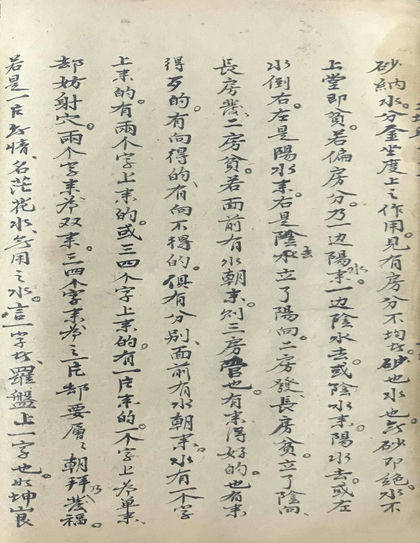 砂納水。分金坐度上之作用。見有房分不均者。砂也水也。無砂即絕。水不
上堂即貧。若偏房分。乃一边陽水來。一边陰水去。或陰水來。陽水去。或左
水倒右。左是陽水來。右是陰水去。立了陽向。二房發。長房貧。立了陰向。
長房發。二房貧。若面前有水朝來。则三房管也。有來得好的。也有來
得歹的。有向得的。有向不得的。俱有分别。面前有水朝來。水有一个字
上來的。有兩个字上來的。或三四个字上來的。有一片來的。个字上為單來。
却妨射穴。兩个字來為双來。三四个字來為之片。却要層々朝拜乃發福。
若是一片無情、名茫花水。無用之水。言一字者、羅盤上一字也。如坤艮